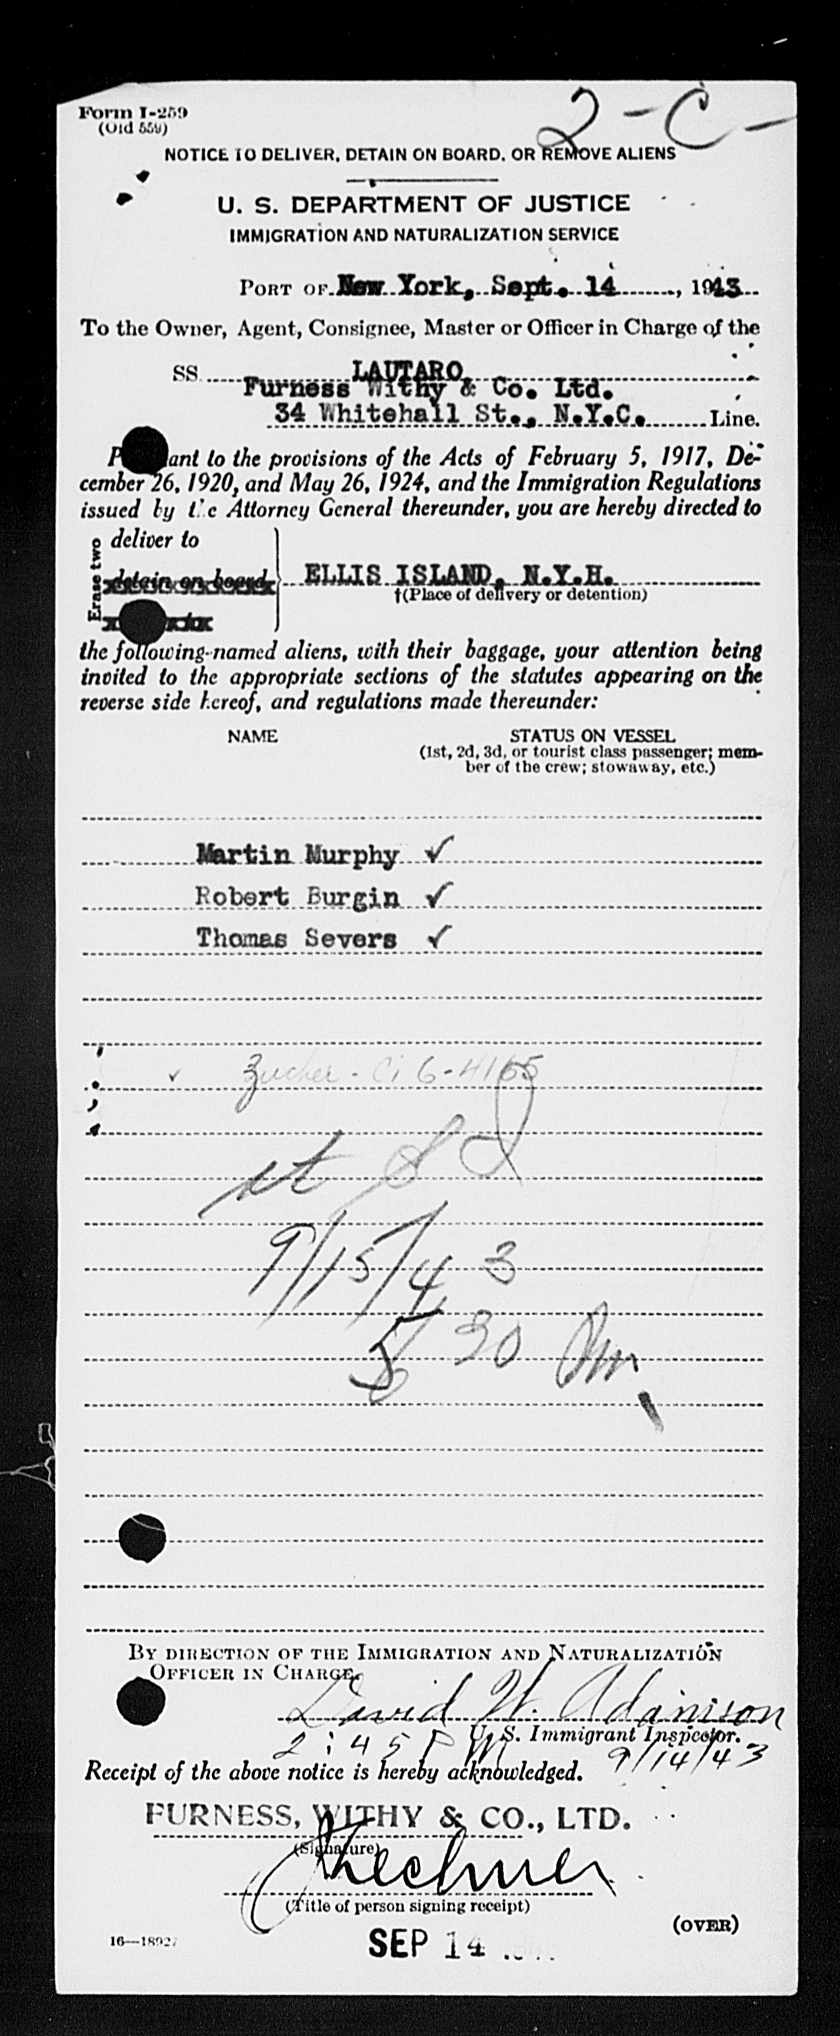 Form I-259
(Old 559)
2-C-
NOTICE TO DELIVER, DETAIN ON BOARD, OR REMOVE ALIENS
U. S. DEPARTMENT OF JUSTICE
IMMIGRATION AND NATURALIZATION SERVICE
PORT OF New York, Sept. 14, 1943
To the Owner, Agent, Consignee, Master or Officer in Charge of the
SS LAUTARO
Furness Withy & Co. Ltd.
34 Whitehall St., N.Y.C. Line.
P ant to the provisions of the Acts of February 5, 1917, De-
cember 26, 1920, and May 26, 1924, and the Immigration Regulations
issued by the Attorney General thereunder, you are hereby directed to
Erase two
deliver to
detain on board
ELLIS ISLAND, N.Y.H.
†(Place of delivery or detention)
the following-named aliens, with their baggage, your attention being
invited to the appropriate sections of the statutes appearing on the
reverse side hereof, and regulations made thereunder:
NAME STATUS ON VESSEL
(1st, 2d, 3d, or tourist class passenger; mem-
ber of the crew; stowaway, etc.)
Martin Murphy ✓
Robert Burgin ✓
Thomas Severs ✓
✓ Zucher - Ci 6-4165
9/15/43
5 30 Pm
BY DIRECTION OF THE IMMIGRATION AND NATURALIZATION
OFFICER IN CHARGE.
David W. Adamson
U. S. Immigrant Inspector.
2:45 PM 9/14/43
Receipt of the above notice is hereby acknowledged.
FURNESS, WITHY & CO., LTD.
(Signature)
(Title of person signing receipt)
(OVER)
16—18927
SEP 14